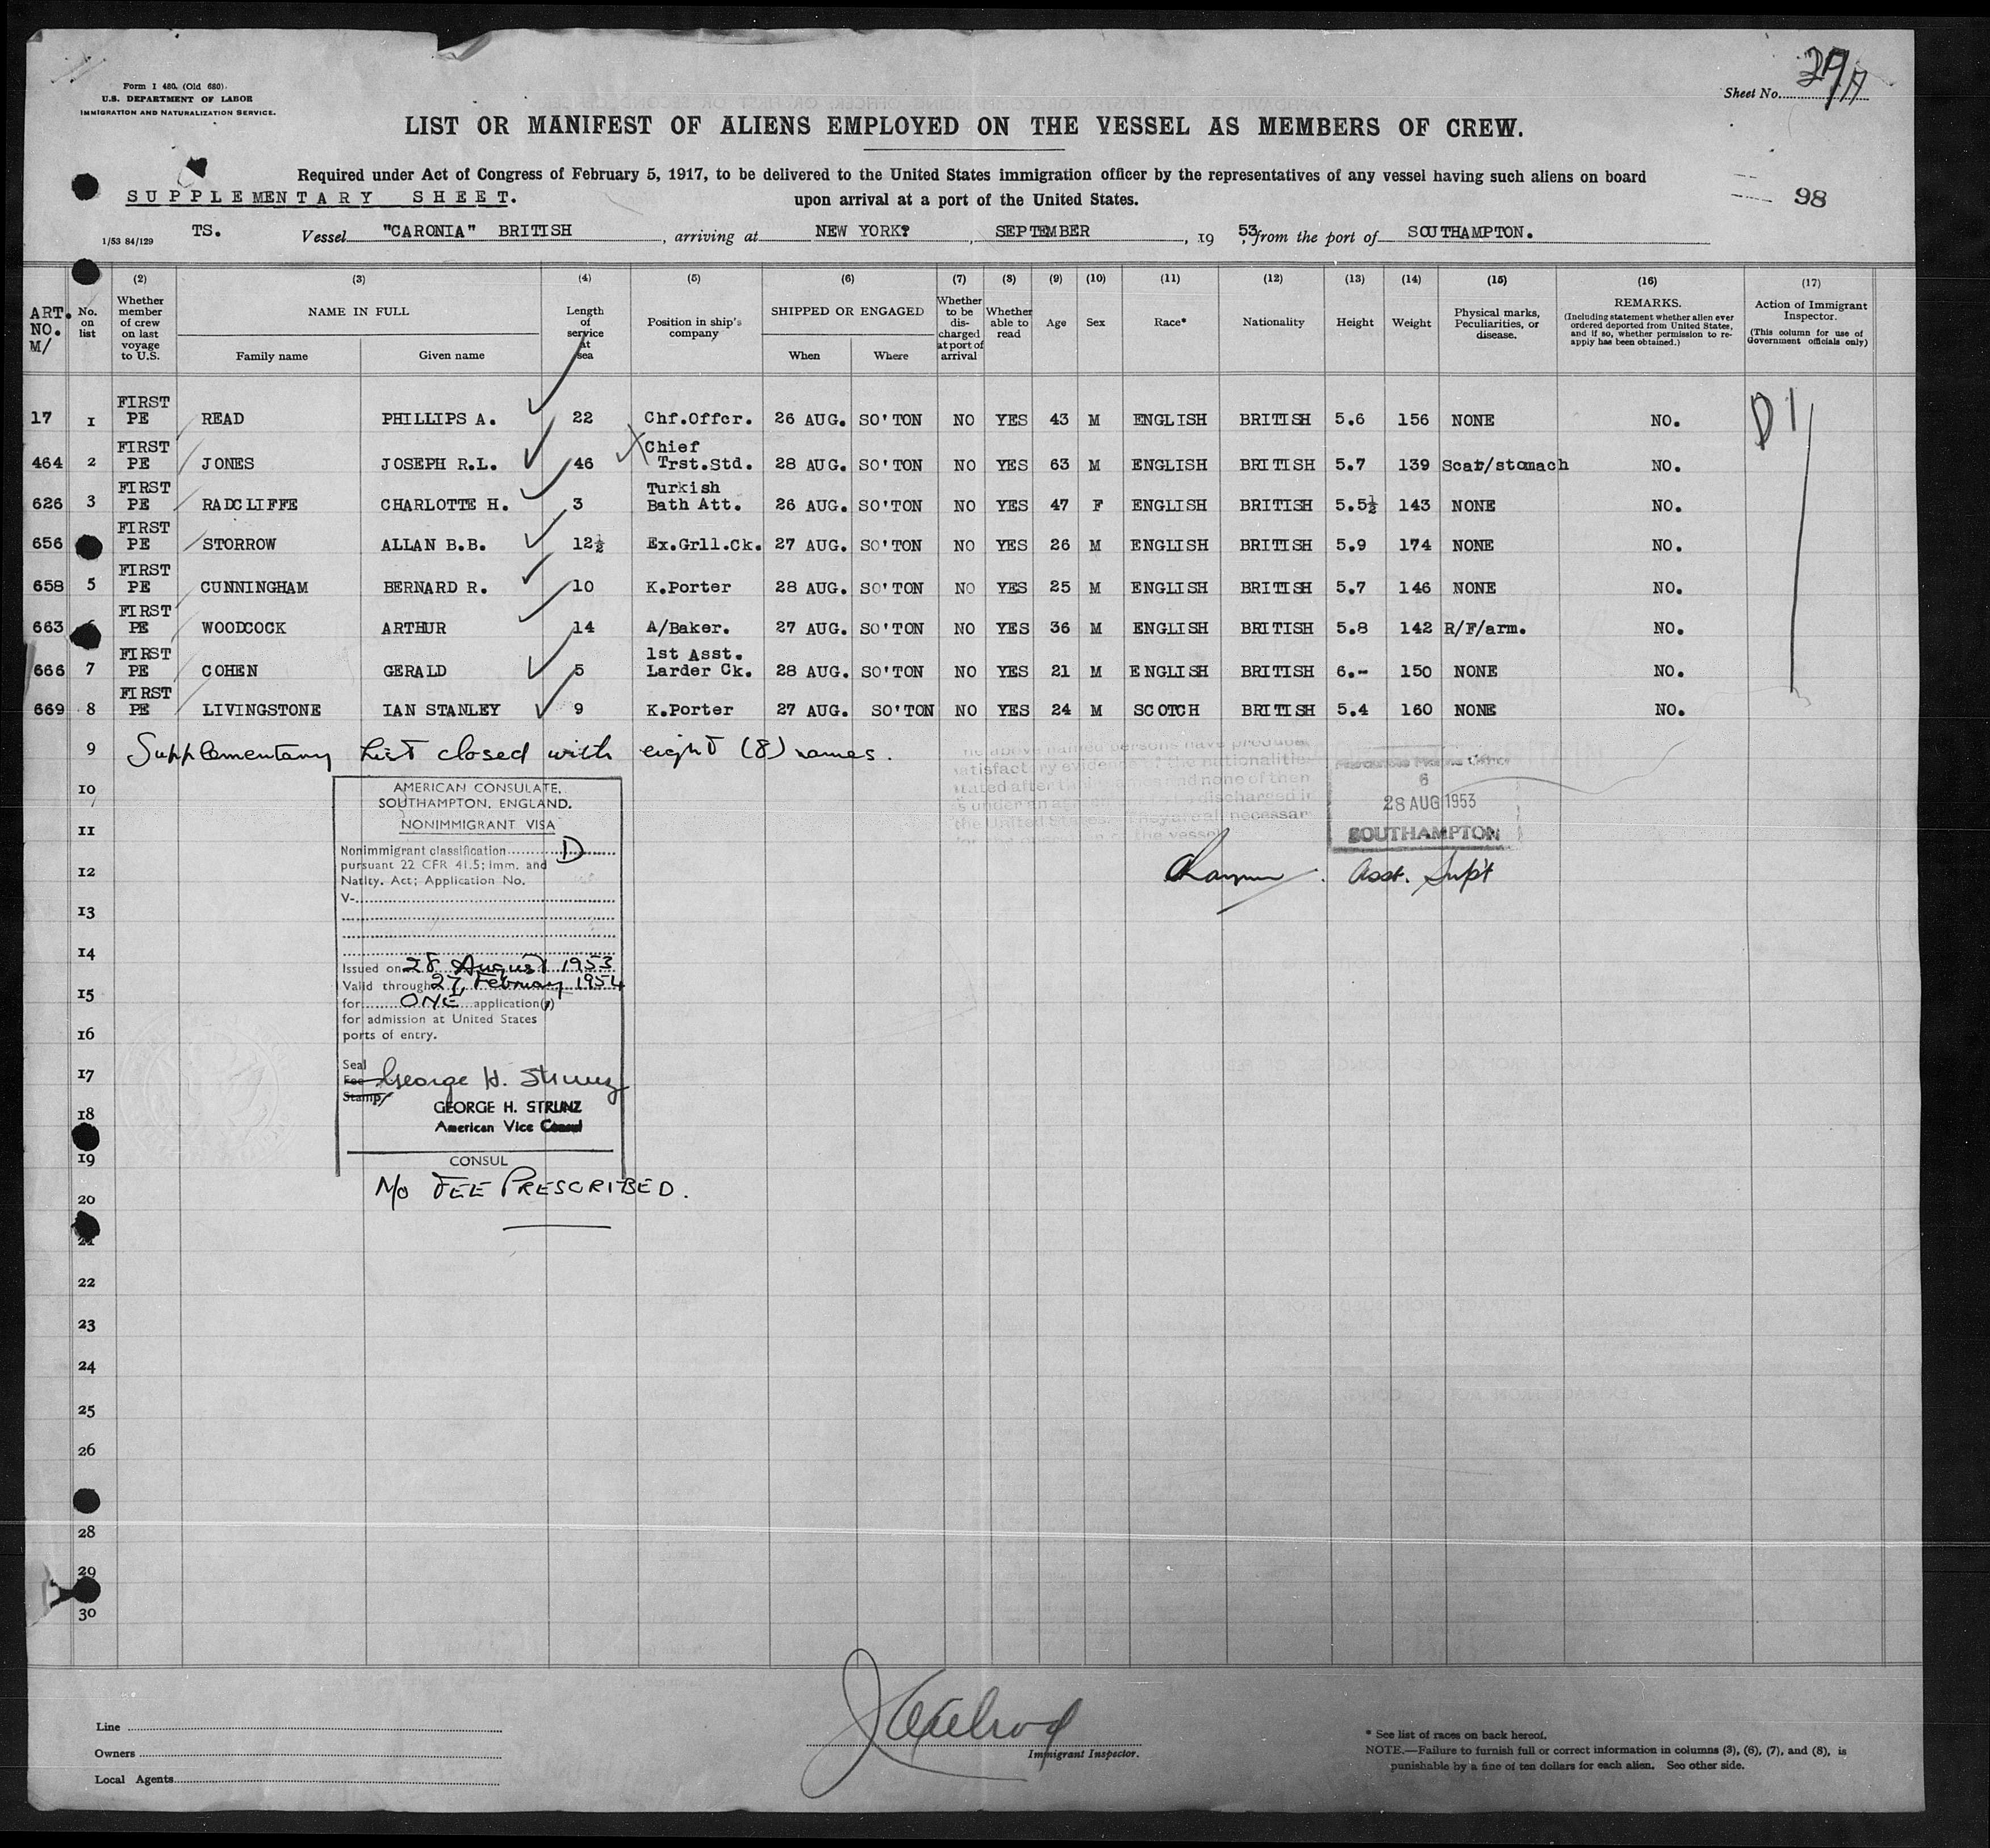 Form I 480. (Old 680).
U.S. DEPARTMENT OF LABOR
IMMIGRATION AND NATURALIZATION SERVICE.
Sheet No.
LIST OR MANIFEST OF ALIENS EMPLOYED ON THE VESSEL AS MEMBERS OF CREW.
Required under Act of Congress of February 5, 1917, to be delivered to the United States immigration officer by the representatives of any vessel having such aliens on board
upon arrival at a port of the United States.
SUPPLEMENTARY SHEET.
98
1/53 84/129
TS. Vessel "CARONIA" BRITISH, arriving at NEW YORK?, SEPTEMBER, 19 53, from the port of SOUTHAMPTON.
ART. NO. M/
No. on list
(2) Whether member of crew on last voyage to U.S.
(3) NAME IN FULL
Family name Given name
(4) Length of service at sea
(5) Position in ship's company
(6) SHIPPED OR ENGAGED
When Where
(7) Whether to be discharged at port of arrival
(8) Whether able to read
(9) Age
(10) Sex
(11) Race*
(12) Nationality
(13) Height
(14) Weight
(15) Physical marks, Peculiarities, or disease.
(16) REMARKS. (Including statement whether alien ever ordered deported from United States, and if so, whether permission to re-apply has been obtained.)
(17) Action of Immigrant Inspector. (This column for use of Government officials only)
17 1 FIRST PE READ PHILLIPS A. 22 Chf.Offcr. 26 AUG. SO'TON NO YES 43 M ENGLISH BRITISH 5.6 156 NONE NO. D1
464 2 FIRST PE JONES JOSEPH R.L. 46 Chief Trst.Std. 28 AUG. SO'TON NO YES 63 M ENGLISH BRITISH 5.7 139 Scar/stomach NO.
626 3 FIRST PE RADCLIFFE CHARLOTTE H. 3 Turkish Bath Att. 26 AUG. SO'TON NO YES 47 F ENGLISH BRITISH 5.5½ 143 NONE NO.
656 FIRST PE STORROW ALLAN B.B. 12½ Ex.Grll.Ck. 27 AUG. SO'TON NO YES 26 M ENGLISH BRITISH 5.9 174 NONE NO.
658 5 FIRST PE CUNNINGHAM BERNARD R. 10 K.Porter 28 AUG. SO'TON NO YES 25 M ENGLISH BRITISH 5.7 146 NONE NO.
663 FIRST PE WOODCOCK ARTHUR 14 A/Baker. 27 AUG. SO'TON NO YES 36 M ENGLISH BRITISH 5.8 142 R/F/arm. NO.
666 7 FIRST PE COHEN GERALD 5 1st Asst. Larder Ck. 28 AUG. SO'TON NO YES 21 M ENGLISH BRITISH 6.- 150 NONE NO.
669 8 FIRST PE LIVINGSTONE IAN STANLEY 9 K.Porter 27 AUG. SO'TON NO YES 24 M SCOTCH BRITISH 5.4 160 NONE NO.
9 Supplementary List closed with eight (8) names.
10
11
12
13
14
15
16
17
18
19
20
21
22
23
24
25
26
28
29
30
AMERICAN CONSULATE,
SOUTHAMPTON, ENGLAND.
NONIMMIGRANT VISA
Nonimmigrant classification D
pursuant 22 CFR 41.5; Imm. and
Natlty. Act; Application No.
V-
Issued on 28 August 1953
Valid through 27 February 1954
for ONE application(s)
for admission at United States
ports of entry.
Seal
Fee George H. Strunz
Stamp
GEORGE H. STRUNZ
American Vice Consul
CONSUL
NO FEE PRESCRIBED.
above named persons have
satisfactory evidence of the nationalities
stated after and none of them
under an discharged in
the United States. They are all necessary
the vessel
6
28 AUG 1953
SOUTHAMPTON
Asst. Supt
Line
Owners
Local Agents
J Axelrod
Immigrant Inspector.
* See list of races on back hereof.
NOTE.—Failure to furnish full or correct information in columns (3), (6), (7), and (8), is
punishable by a fine of ten dollars for each alien. See other side.